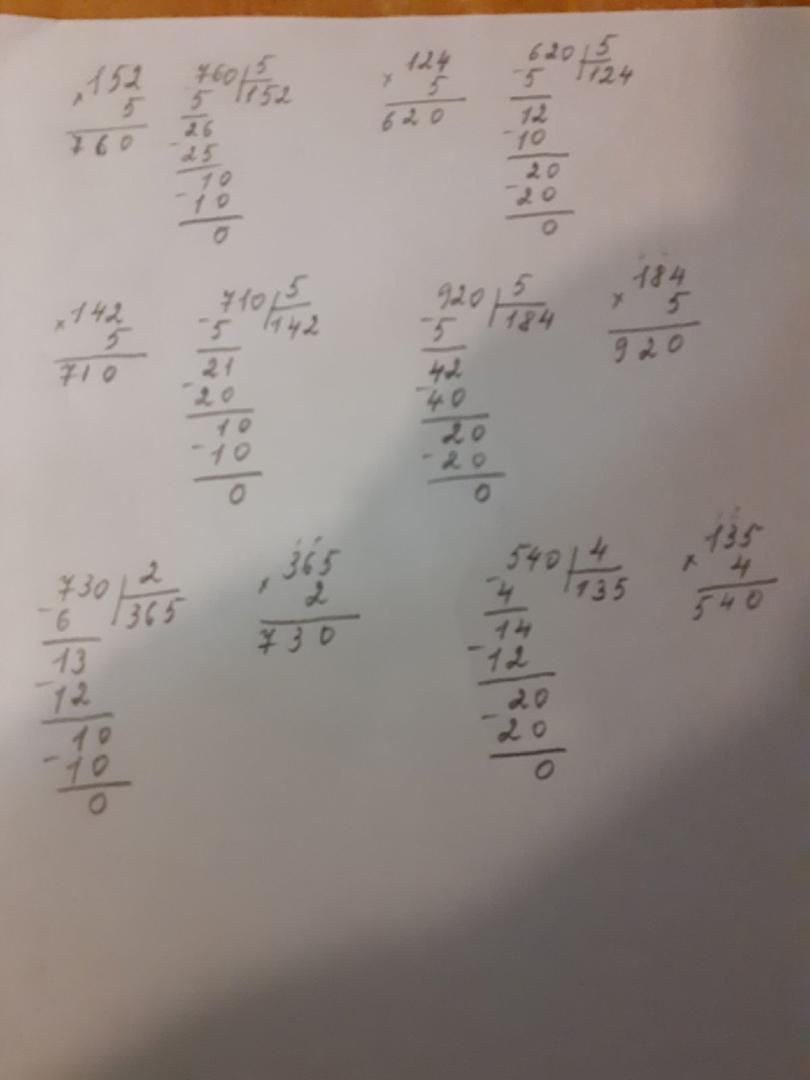 ×152 -760|5 ×124 -620|5
5 5 152 5 5 124
760 26 620 12
-25 -10
10 20
-10 -20
0 0
×142 -710|5 -920|5 ×184
5 5 142 5 184 5
710 21 42 920
-20 -40
10 20
-10 -20
0 0
-730|2 ×365 -540|4 ×135
6 365 2 4 135 4
13 730 14 540
-12 -12
10 20
-10 -20
0 0